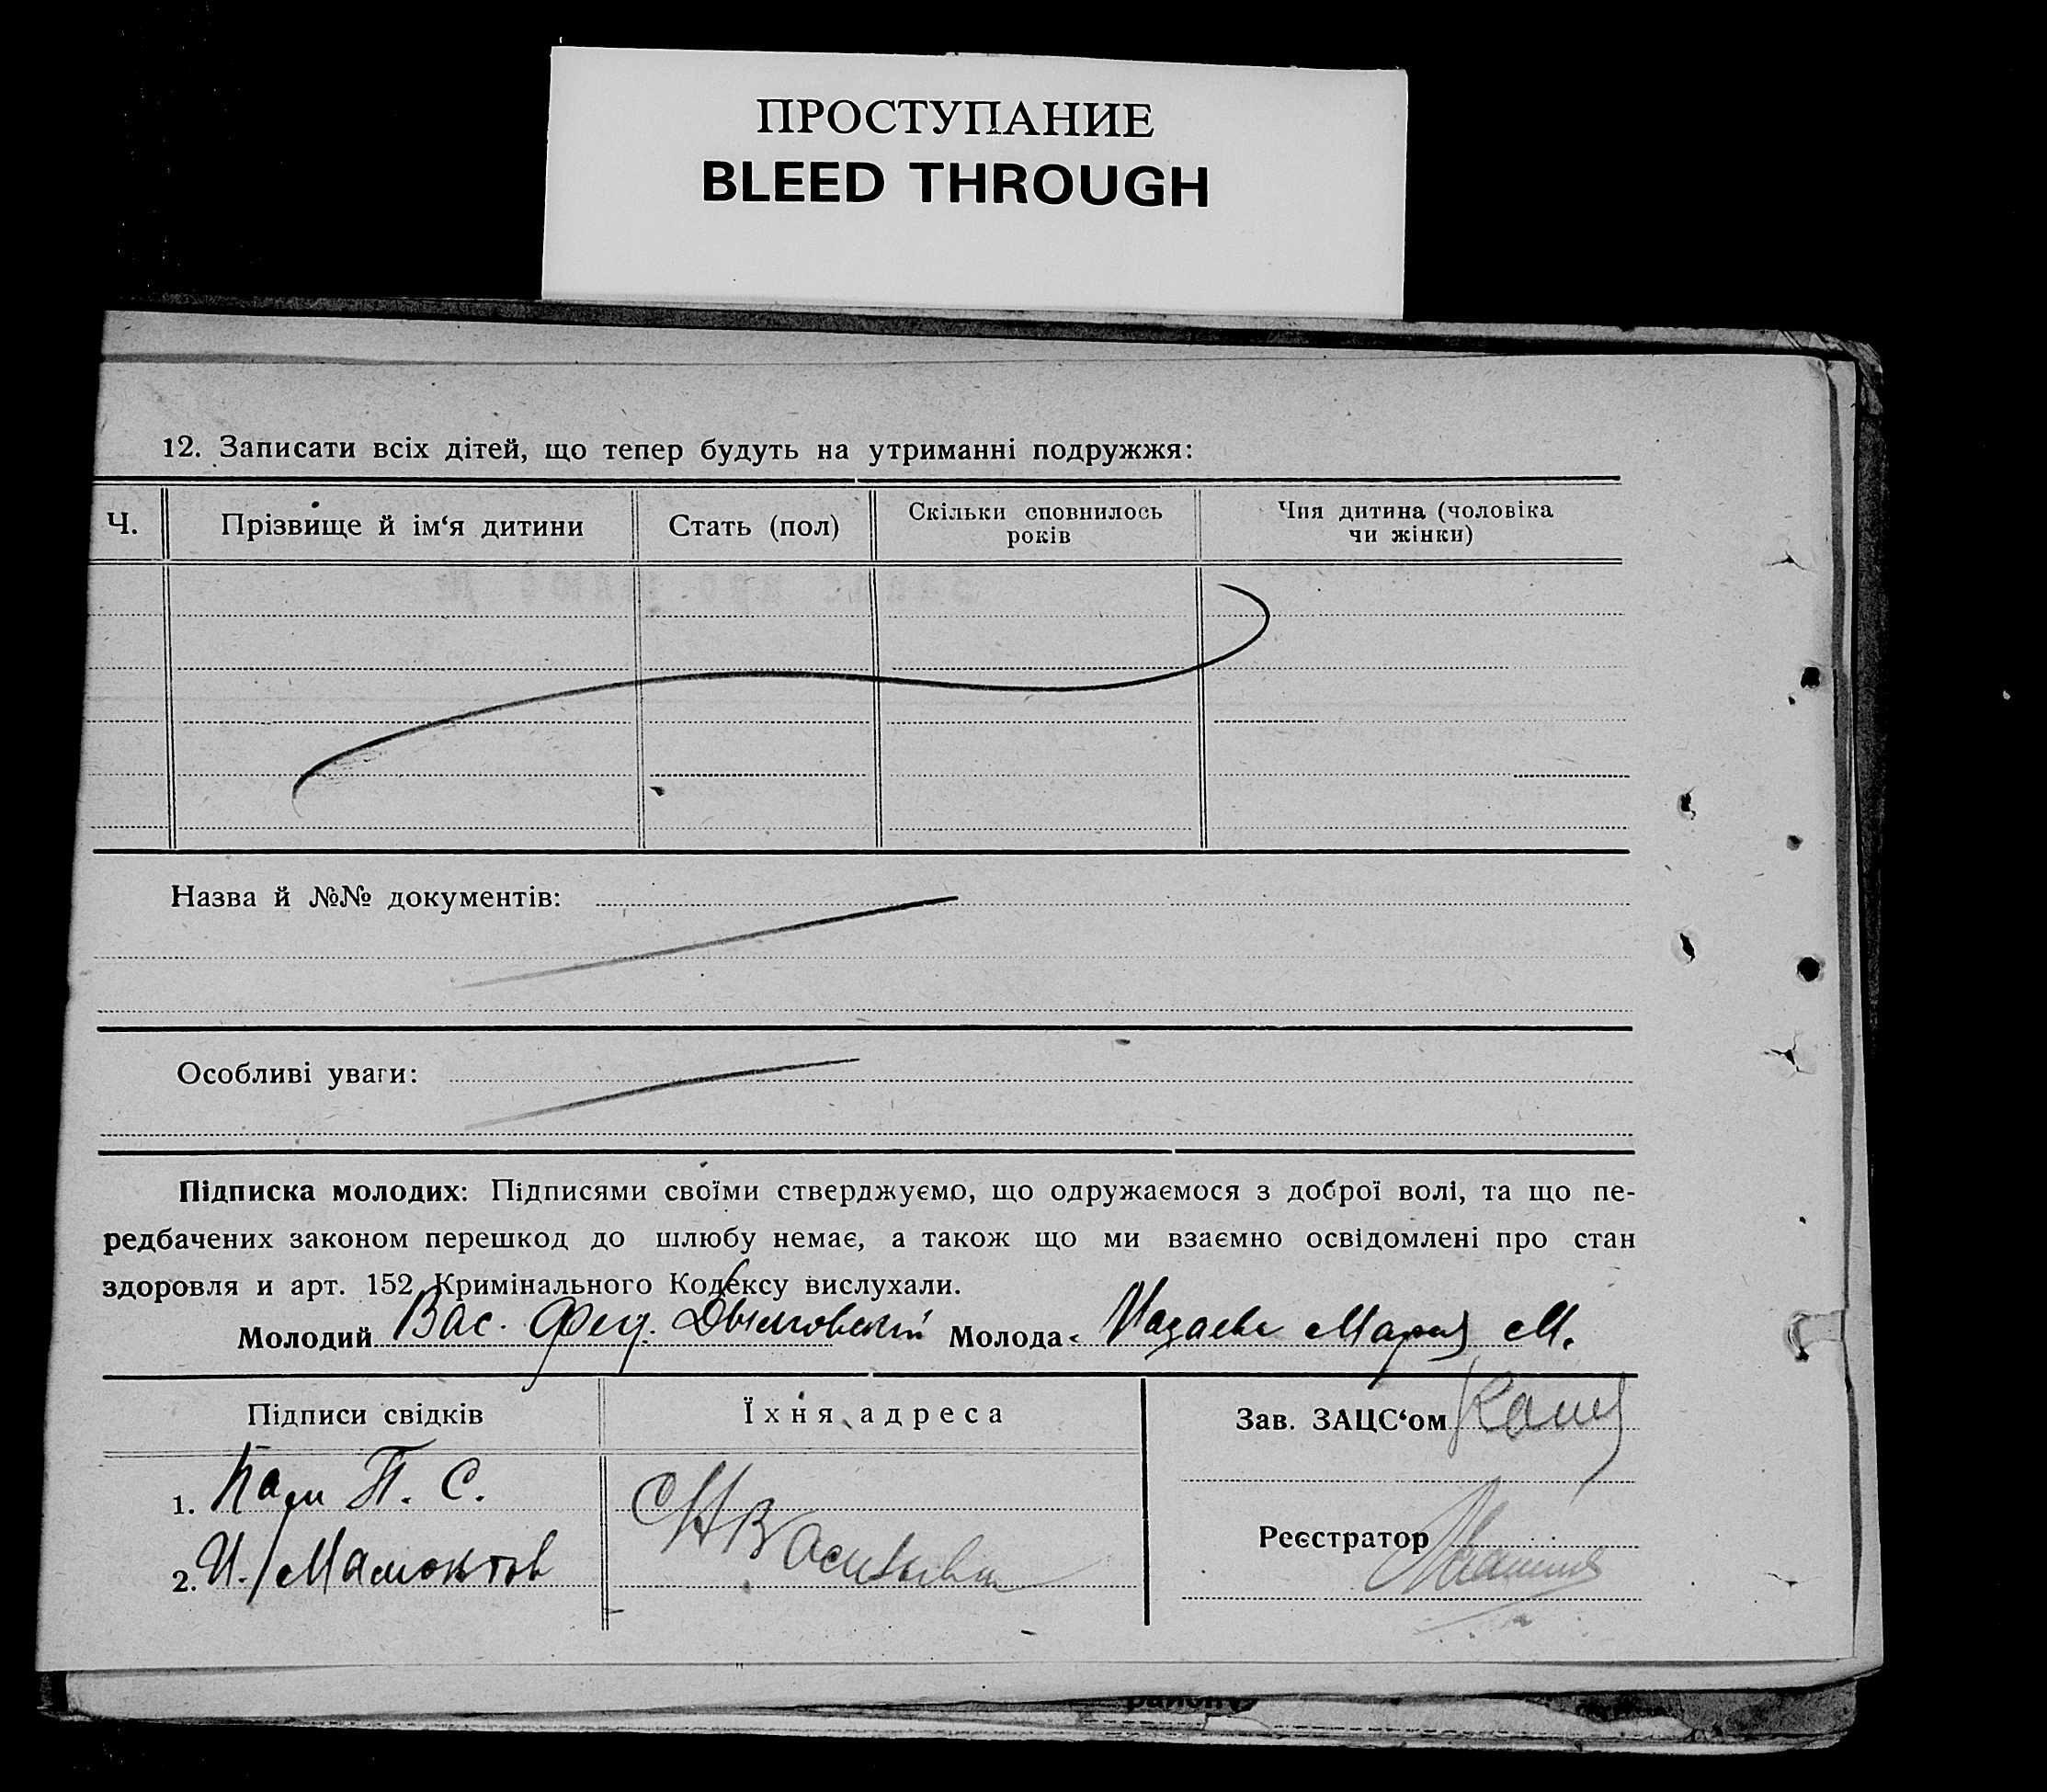 ПРОСТУПАНИЕ
BLEED THROUGH
12. Записати всіх дітей, що тепер будуть на утриманні подружжя:
Ч. Прізвище й ім‘я дитини Стать (пол) Скільки сповнилось років Чия дитина (чоловіка чи жінки)
Назва й №№ документів:
Особливі уваги:
Підписка молодих: Підписями своїми стверджуємо, що одружаємося з доброї волі, та що пе-
редбачених законом перешкод до шлюбу немає, а також що ми взаємно освідомлені про стан
здоровля и арт. 152 Кримінального Кодексу вислухали.
Молодий Вас. Фед. Молода Мария М.
Підписи свідків Їхня адреса Зав. ЗАЦС‘ом
1. П. С.
Реєстратор
2. И. Мамонтов